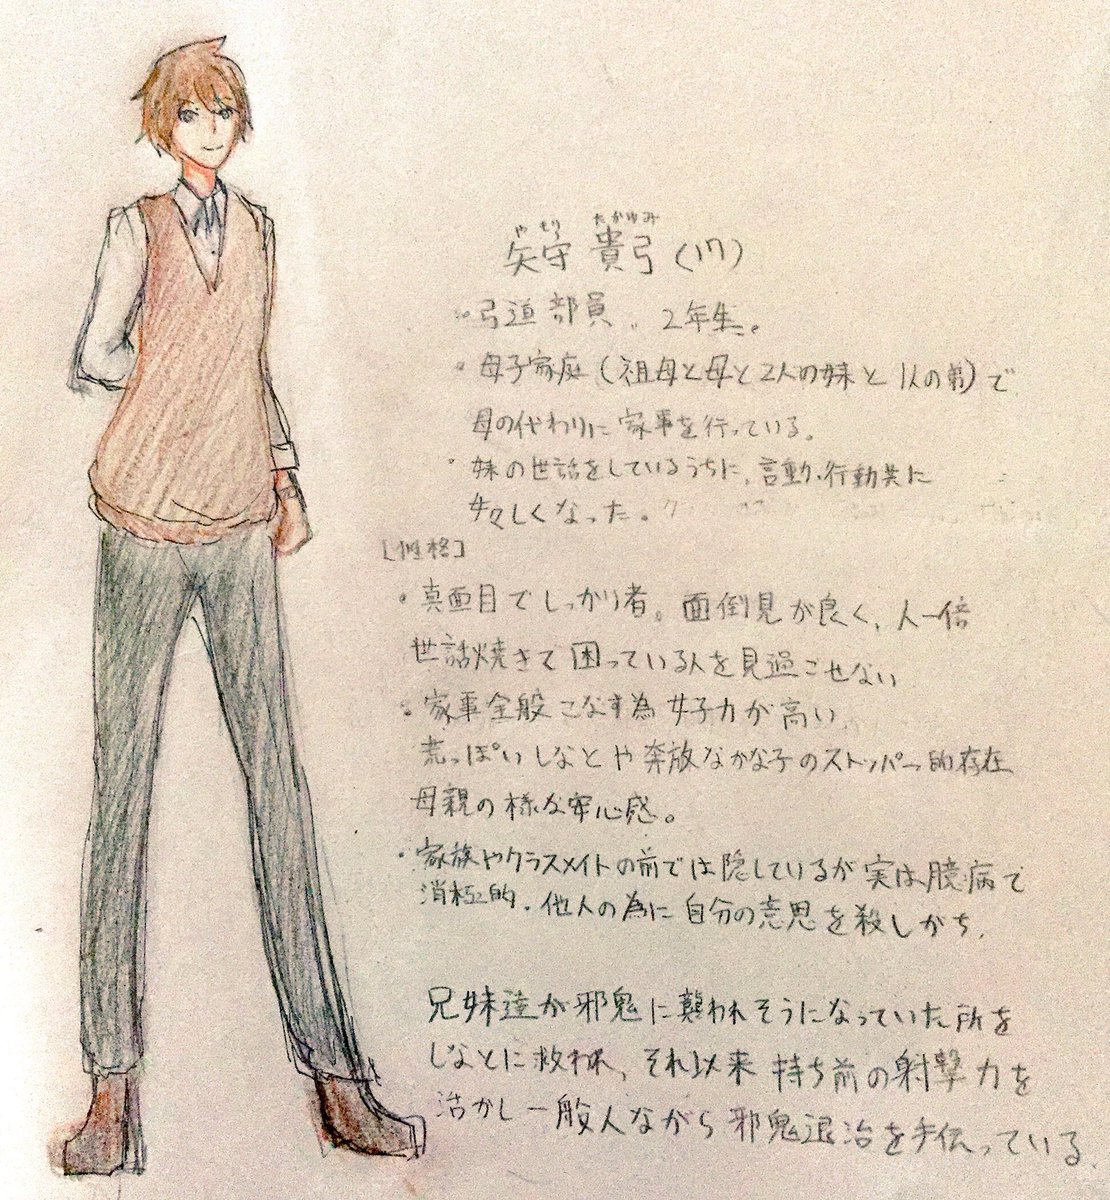 やもり たかゆみ
矢守 貴弓(17)
・弓道部員。2年生。
・母子家庭(祖母と母と2人の妹と1人の弟)で
母の代わりに家事を行っている。
・妹の世話をしているうちに、言動・行動共に
女々しくなった。
[性格]
・真面目でしっかり者。面倒見が良く、人一倍
世話焼きで困っている人を見過ごせない
・家事全般こなす為女子力が高い
荒っぽいしなとや奔放なかな子のストッパー的存在
母親の様な安心感。
・家族やクラスメイトの前では隠しているが実は臆病で
消極的。他人の為に自分の意思を殺しがち。
兄妹達が邪鬼に襲われそうになっていた所を
しなとに救われ、それ以来持ち前の射撃力を
活かし一般人ながら邪鬼退治を手伝っている。